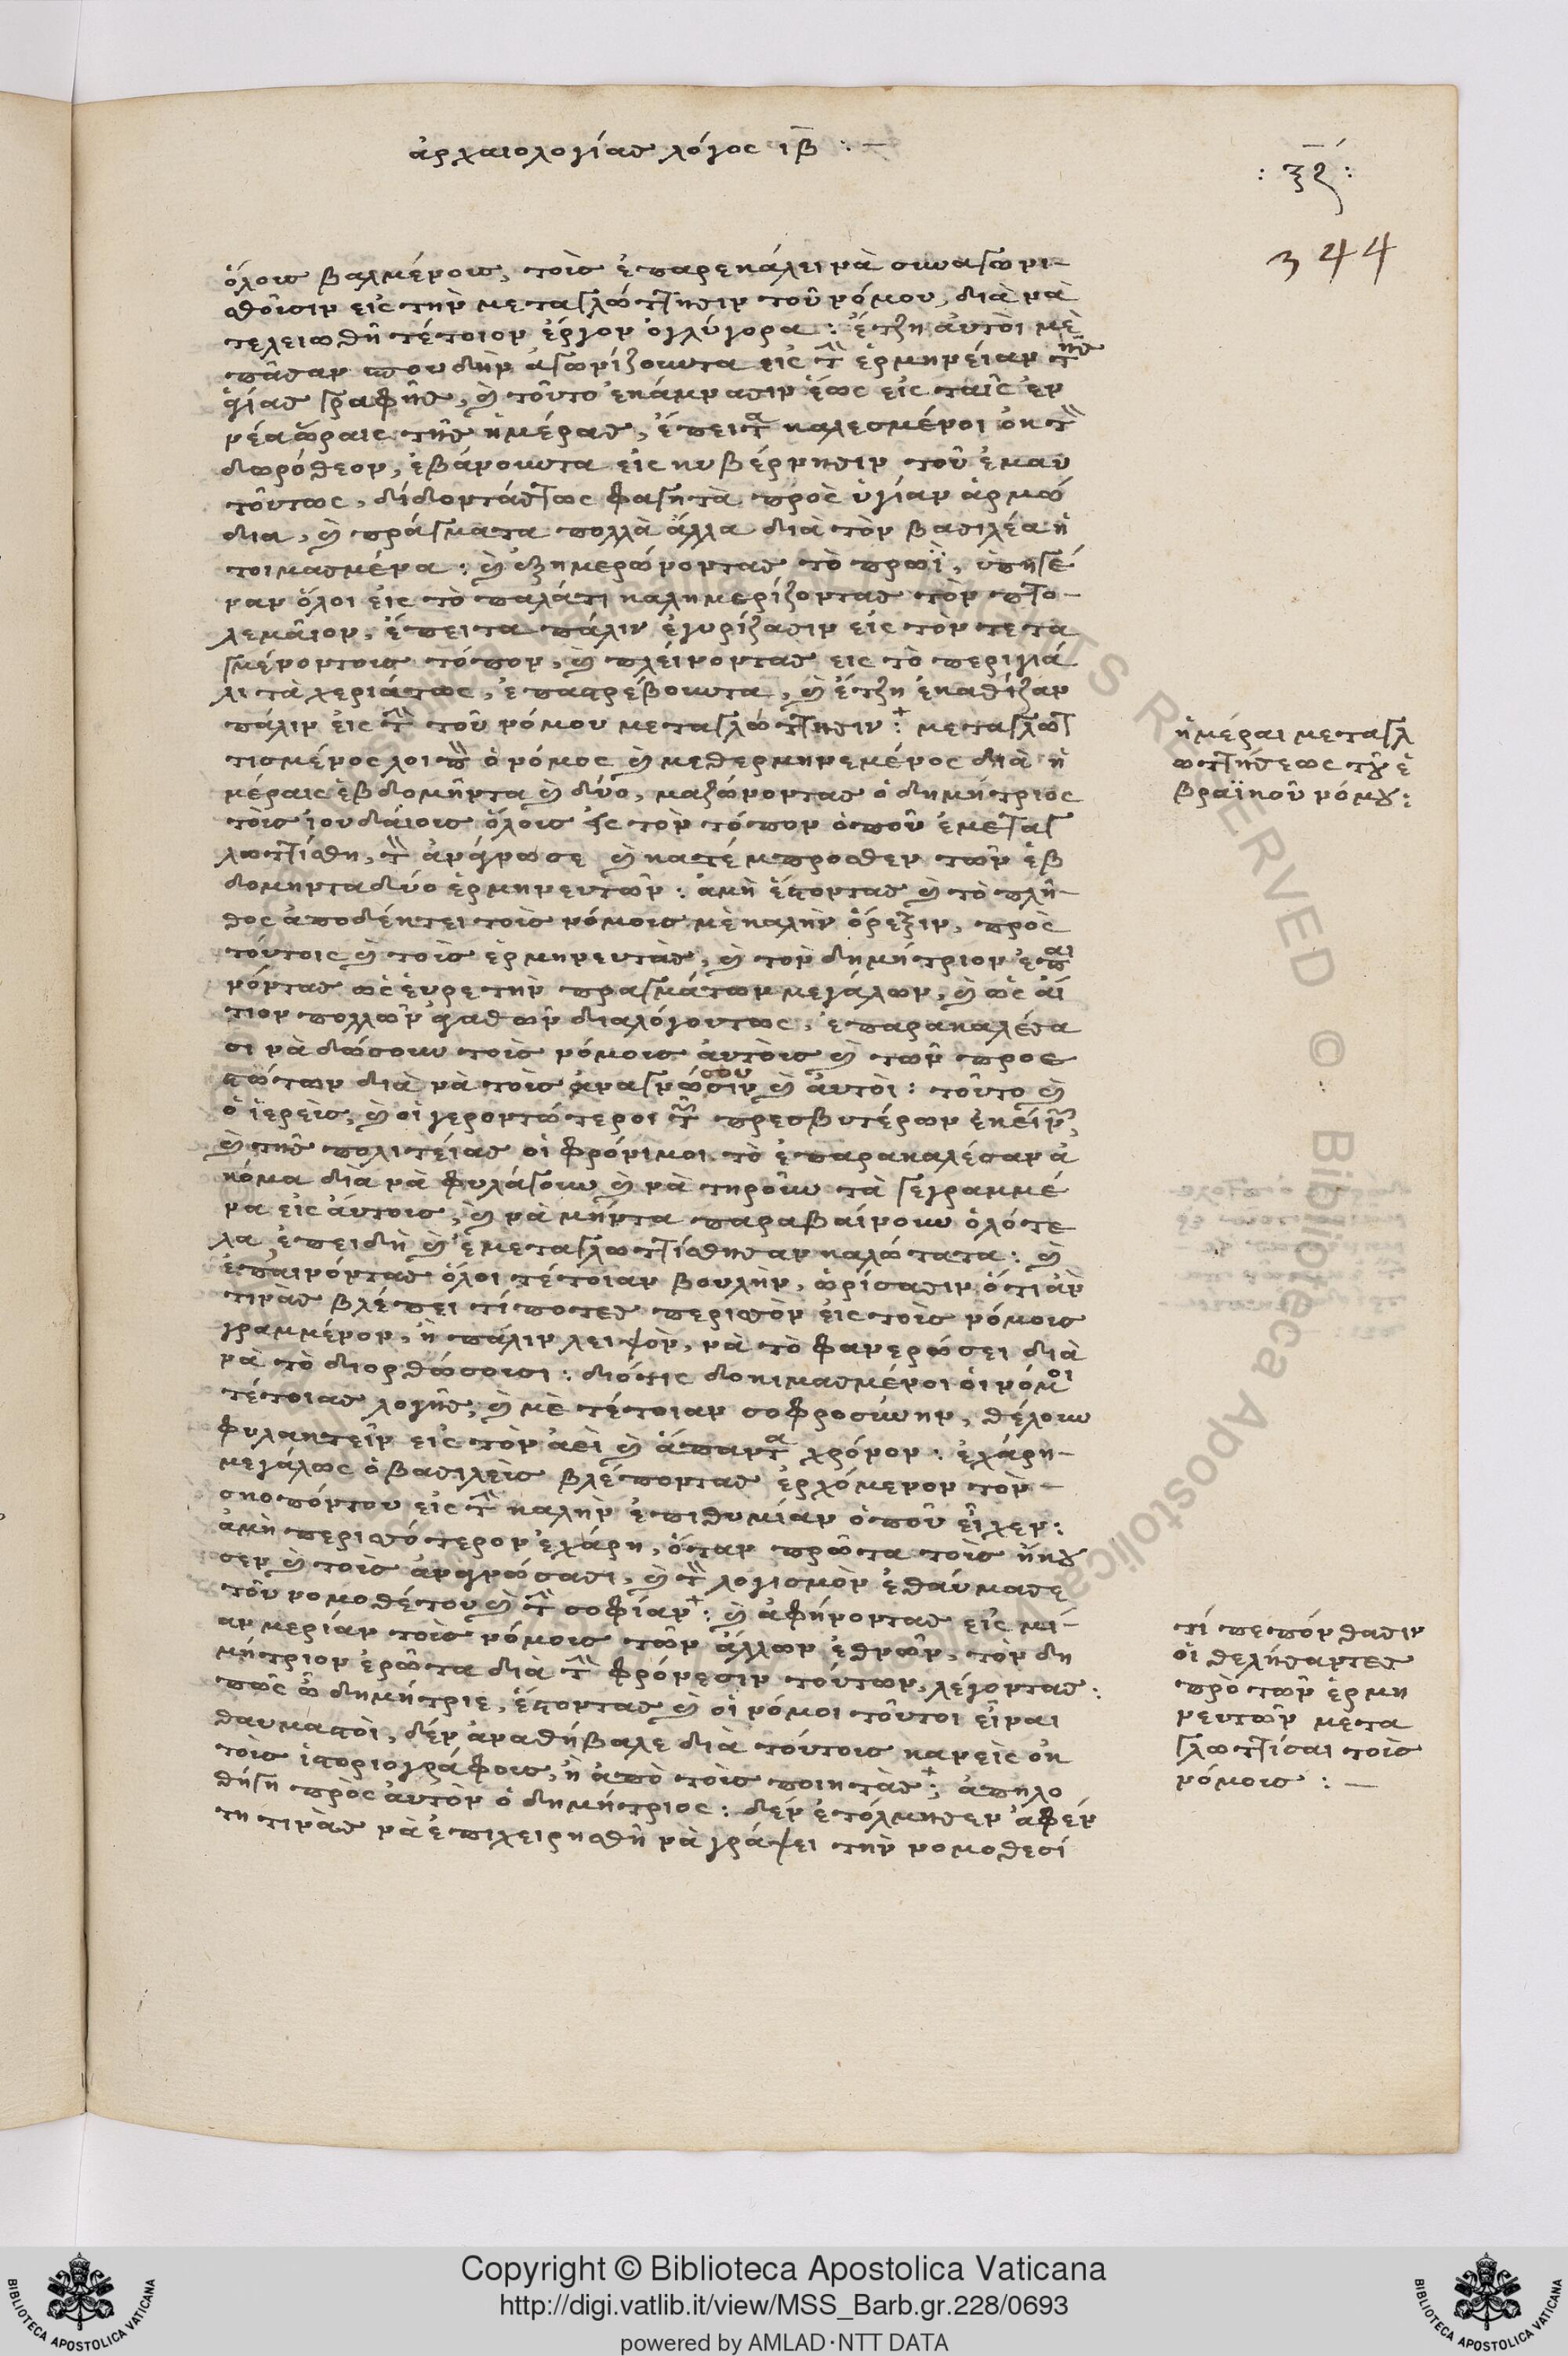 ἀρχαιολογίας λόγος ιβ : —
: ξζ :
344
ὅλους βαλμένους, τοὺς ἐπαρεκάλει νὰ συναγωνι-
σθοῦσιν εἰς τὴν μεταγλώττησιν τοῦ νόμου, διὰ νὰ
τελειωθῆ τέτοιον ἔργον ὀγλύγορα : ἔτζη αὐτοὶ μὲ
πᾶσαν σπουδὴν ἀγωνίζουντα εἰς τὴν ἑρμηνείαν τῆς
ἁγίας γραφῆς, καὶ τοῦτο ἐκάμνασιν ἕως εἰς ταῖς ἐν
νέα ὥραις τῆς ἡμέρας, ἔπειτα καλεσμένοι ἐκ τὸν
δωρόθεον, ἐβάνουντα εἰς κυβέρνησιν τοῦ ἐμαυ
τοῦντως, δίδοντάςτως φαγητὰ πρὸς ὑγίαν ἁρμώ
δια, καὶ πράγματα πολλὰ ἄλλα διὰ τὸν βασιλέα ἡ
τοιμασμένα : καὶ ἐξημερώνοντας τὸ πρωῒ, ὑπηγέ
ναν ὅλοι εἰς τὸ παλάτι καλημερίζοντας τὸν πτο-
λεμαῖον, ἔπειτα πάλιν ἐγυρίζασιν εἰς τὸν τετα
γμένοντους τόπον, καὶ πλείνοντας εις τὸ περιγιά
λι τὰ χεριάτως, ἐπαστρέβουντα, καὶ ἔτζη ἐκαθίζαν
πάλιν εἰς τὴν τοῦ νόμου μεταγλώττησιν : μεταγλωτ
τισμένος λοιπὸν ὁ νόμος καὶ μεθερμηνεμένος διὰ ἡ
μέραις ἑβδομῆντα καὶ δύο, μαζώνοντας ὁ δημήτριος
τοὺς ἰουδαίους ὅλους εἰς τὸν τόπον ὁποῦ ἐμεταγ
λωττίσθη, τὸν ἀνάγνωσε καὶ κατέμπροσθεν τῶν ἑβ
δομηνταδύο ἑρμηνευτῶν : ἀμὴ ἔστοντας καὶ τὸ πλῆ-
θος ἀποδέκτει τοὺς νόμους μὲ καλὴν ὄρεξιν, πρὸς
τούτοις καὶ τοὺς ἑρμηνευτὰς, καὶ τὸν δημήτριον ἐπαι
νόντας ὡς εὑρετὴν πραγμάτων μεγάλων, καὶ ὡς αἴ
τιον πολλῶν ἀγαθῶν διαλόγουντως, ἐπαρακαλέσα
σι νὰ δώσουν τοὺς νόμους αὐτοὺς καὶ τῶν προε
στώτων διὰ νὰ τοὺς ἀναγνώσουν καὶ αὐτοὶ : τοῦτο καὶ
ὁ ἱερεὺς, καὶ οἱ γεροντώτεροι τῶν πρεσβυτέρων ἐκείνων,
καὶ τῆς πολιτείας οἱ φρόνιμοι τὸ ἐπαρακαλέσαν ἀ
κόμα διὰ νὰ φυλάγουν καὶ νὰ τηροῦν τὰ γεγραμμέ
να εἰς αὐτους, καὶ νὰ μήντα παραβαίνουν ὁλότε
λα, ἐπειδὴ καὶ ἐμεταγλωττίσθησαν καλώτατα : καὶ
ἐπαινόντας ὅλοι τέτοιαν βουλὴν, ὡρίσασιν ὅτι ἂν
τινας βλέπει τίποτες περισὸν εἰς τοὺς νόμους
γραμμένον, ἢ πάλιν λειψὸν, νὰ τὸ φανερώσει διὰ
νὰ τὸ διορθώσουσι : διότις δοκιμασμένοι οἱ νόμοι
τέτοιας λογῆς, καὶ μὲ τέτοιαν σοφροσύνην, θέλουν
φυλακτεῖν εἰς τὸν ἀεὶ καὶ ἅπαντα χρόνον : ἐχάρη-
μεγάλως ὁ βασιλεὺς βλέποντας ἐρχόμενον τὸν-
σκοπόντου εἰς τὴν καλὴν ἐπιθυμίαν ὁποῦ εἶχεν :
ἀμὴ περισότερον ἐχάρη, ὅταν πρῶτα τοὺς ἤκου
σεν καὶ τοὺς ἀναγνώσασι, καὶ τὸν λογισμὸν ἐθαύμασε
τοῦ νομοθέτου καὶ τὴν σοφίαν : καὶ ἀφήνοντας εἰς μί-
αν μερίαν τοὺς νόμους τῶν ἄλλων ἐθνῶν, τὸν δη
μήτριον ἐρῶτα διὰ τὴν φρόνεσιν τούτων, λέγοντας :
πῶς ὦ δημήτριε, ἔστοντας καὶ οἱ νόμοι τοῦτοι εἶναι
θαυμαστοὶ, δὲν ἀναθήβαλε διὰ τούτους κανεὶς ἐκ
τοὺς ἱστοριογράφους, ἢ ἀπὸ τοὺς ποιητὰς ; ἀπηλο
θήγη πρὸς αὐτὸν ὁ δημήτριος : δὲν ἐτόλμησεν ἀφέν
τη τινὰς νὰ ἐπιχειρησθῆ νὰ γράψει τὴν νομοθεσί
ἡμέραι μεταγλ
ωττήσεως τοῦ ἑ
βραϊκοῦ νόμου :
τί πεπόνθασιν
οἱ θελήσαντες
πρὸ τῶν ἑρμη
νευτῶν μετα
γλωττίσαι τοὺς
νόμους : —
Copyright © Biblioteca Apostolica Vaticana
http://digi.vatlib.it/view/MSS_Barb.gr.228/0693
powered by AMLAD·NTT DATA
BIBLIOTECA APOSTOLICA VATICANA
BIBLIOTECA APOSTOLICA VATICANA